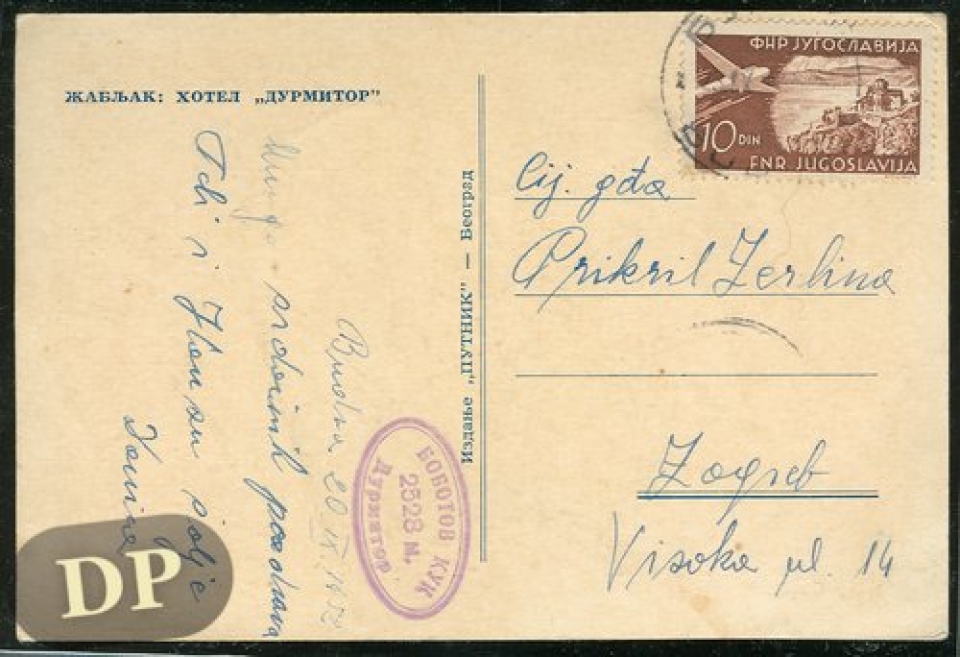 ЖАБЉАК: ХОТЕЛ „ДУРМИТОР"
Budva 20 IX 1952
Mnogo srdačnih pozdrava
Tebi i
šalje
Издање „ПУТНИК" — Београд
БОБОТОВ КУК
2528 м.
Дурмитор
ФНР ЈУГОСЛАВИЈА
10 DIN
FNR JUGOSLAVIJA
Cij. gđa
Prikril Zerlina
Zagreb
Visoka ul. 14
DP